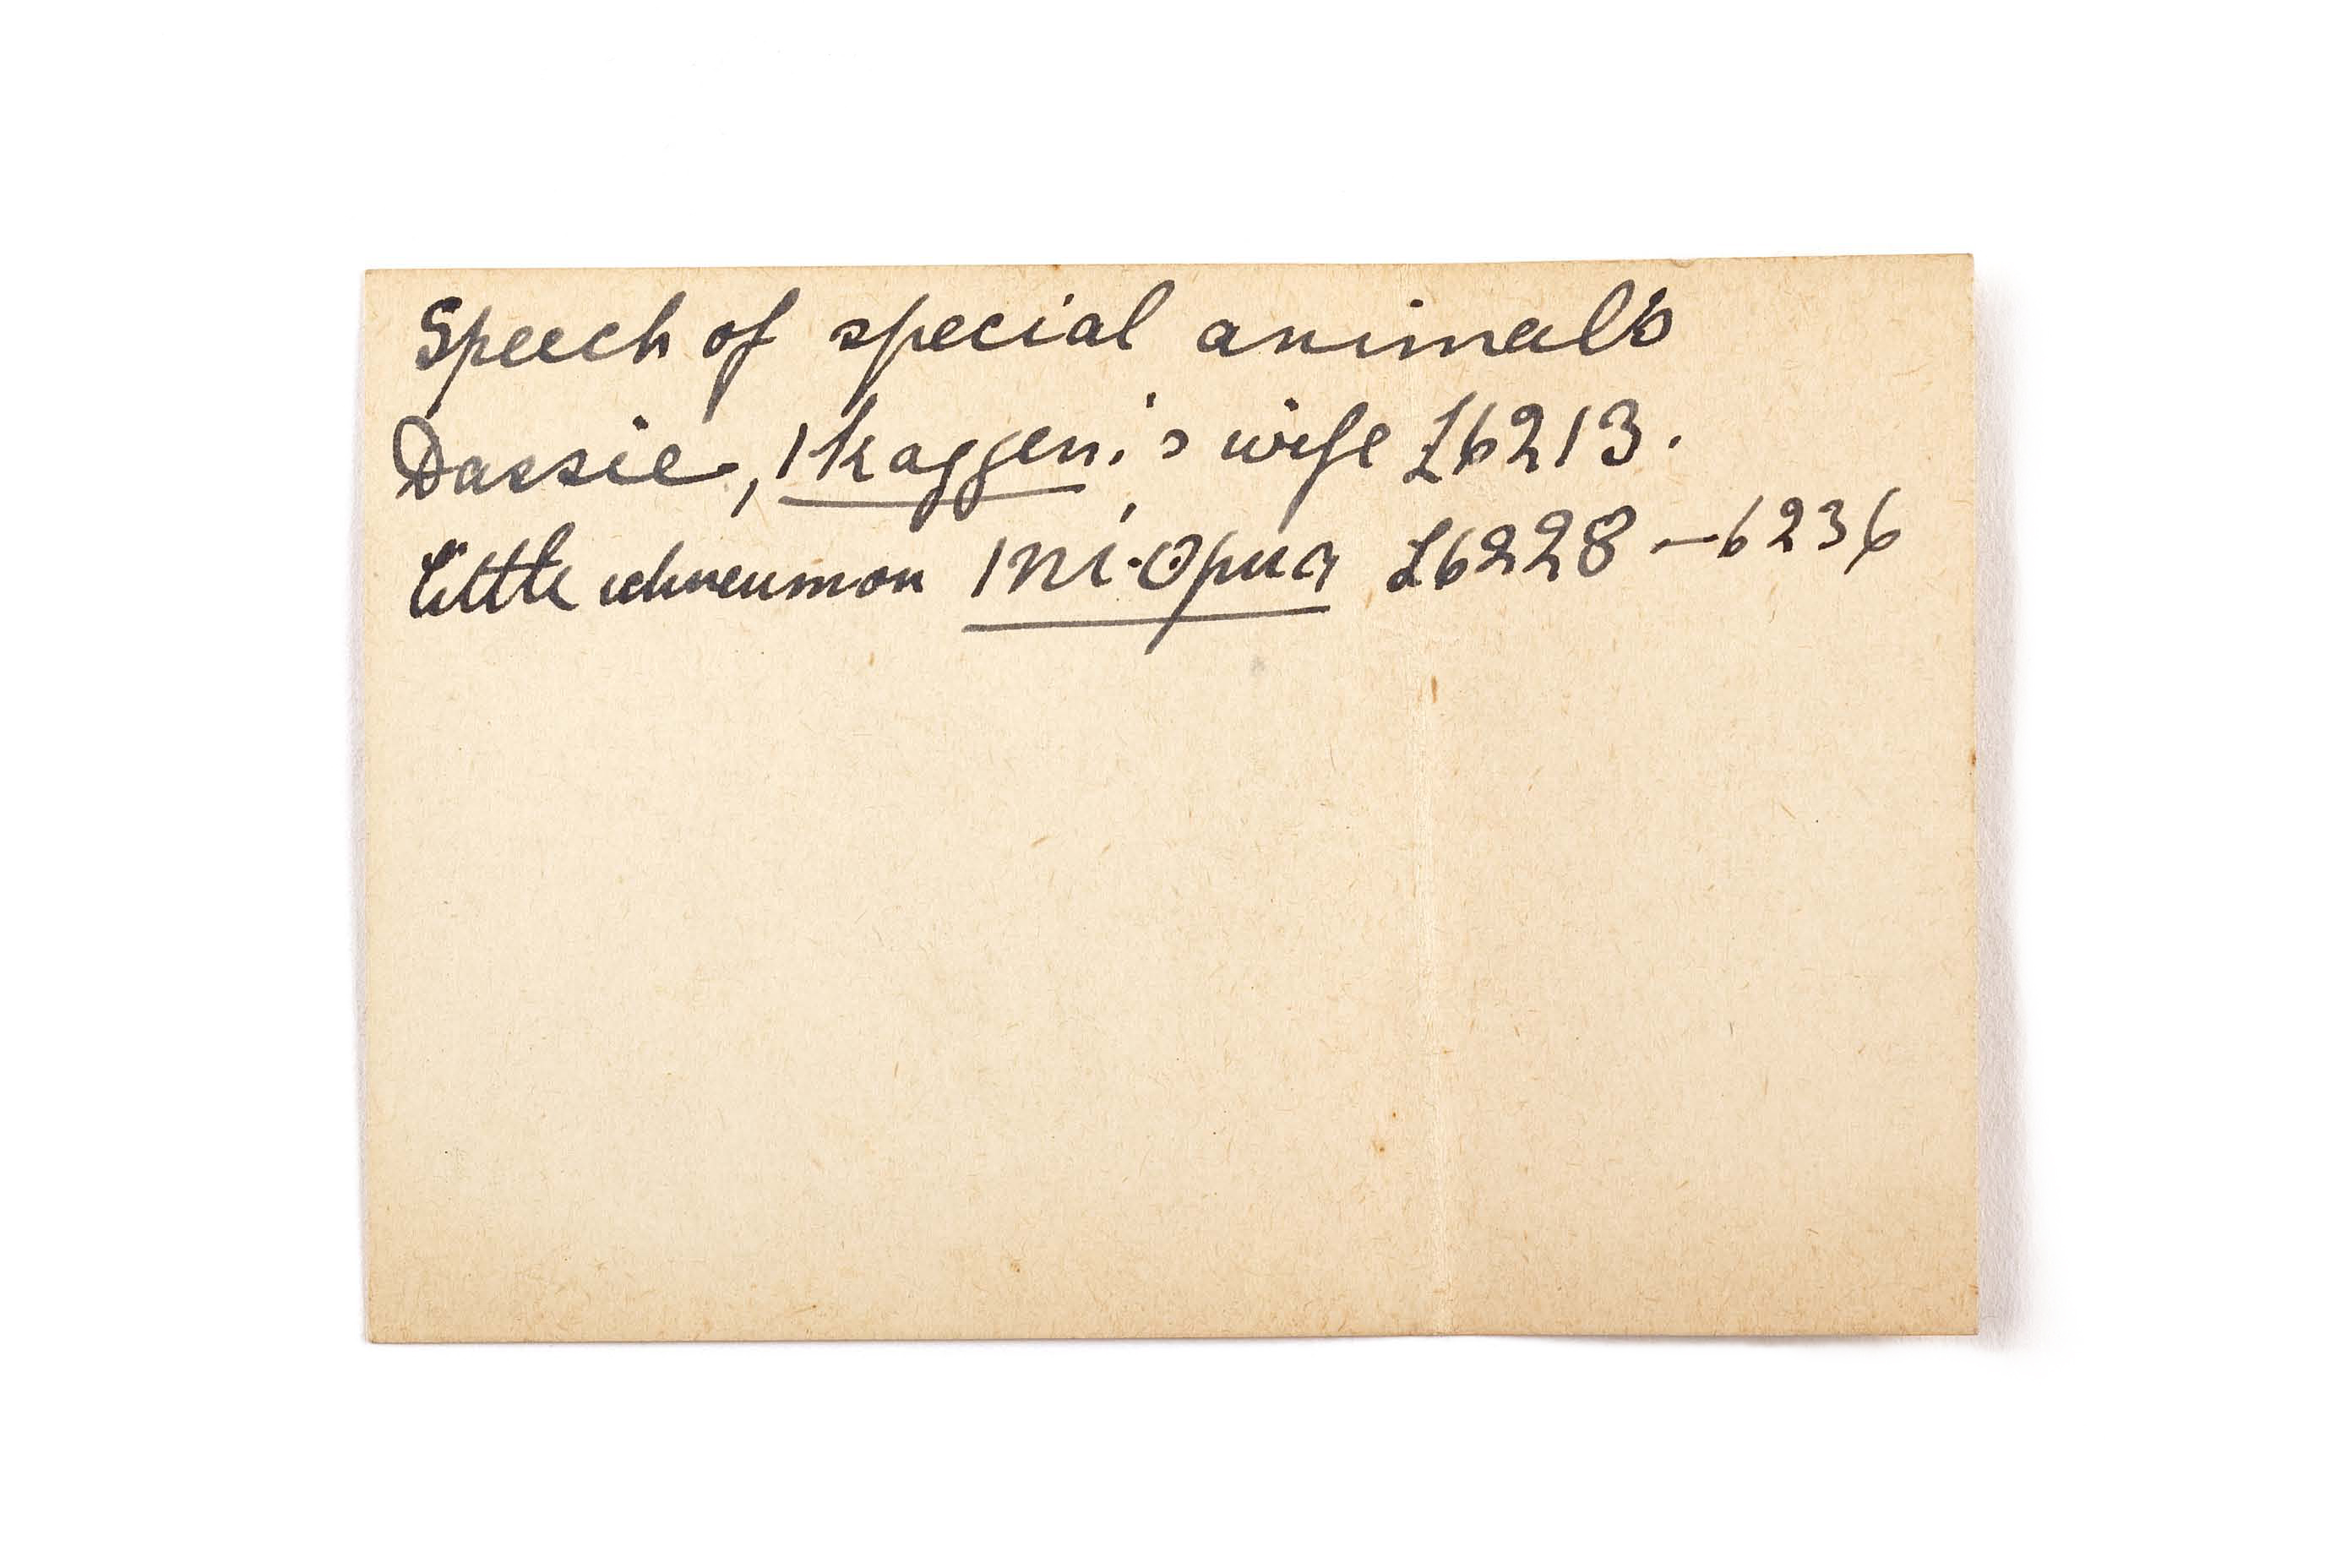 Speech of special animals
Dassie, |kaggen's wife L6213.
Little ichneumon |ni-ʘpua L6228 – 6236